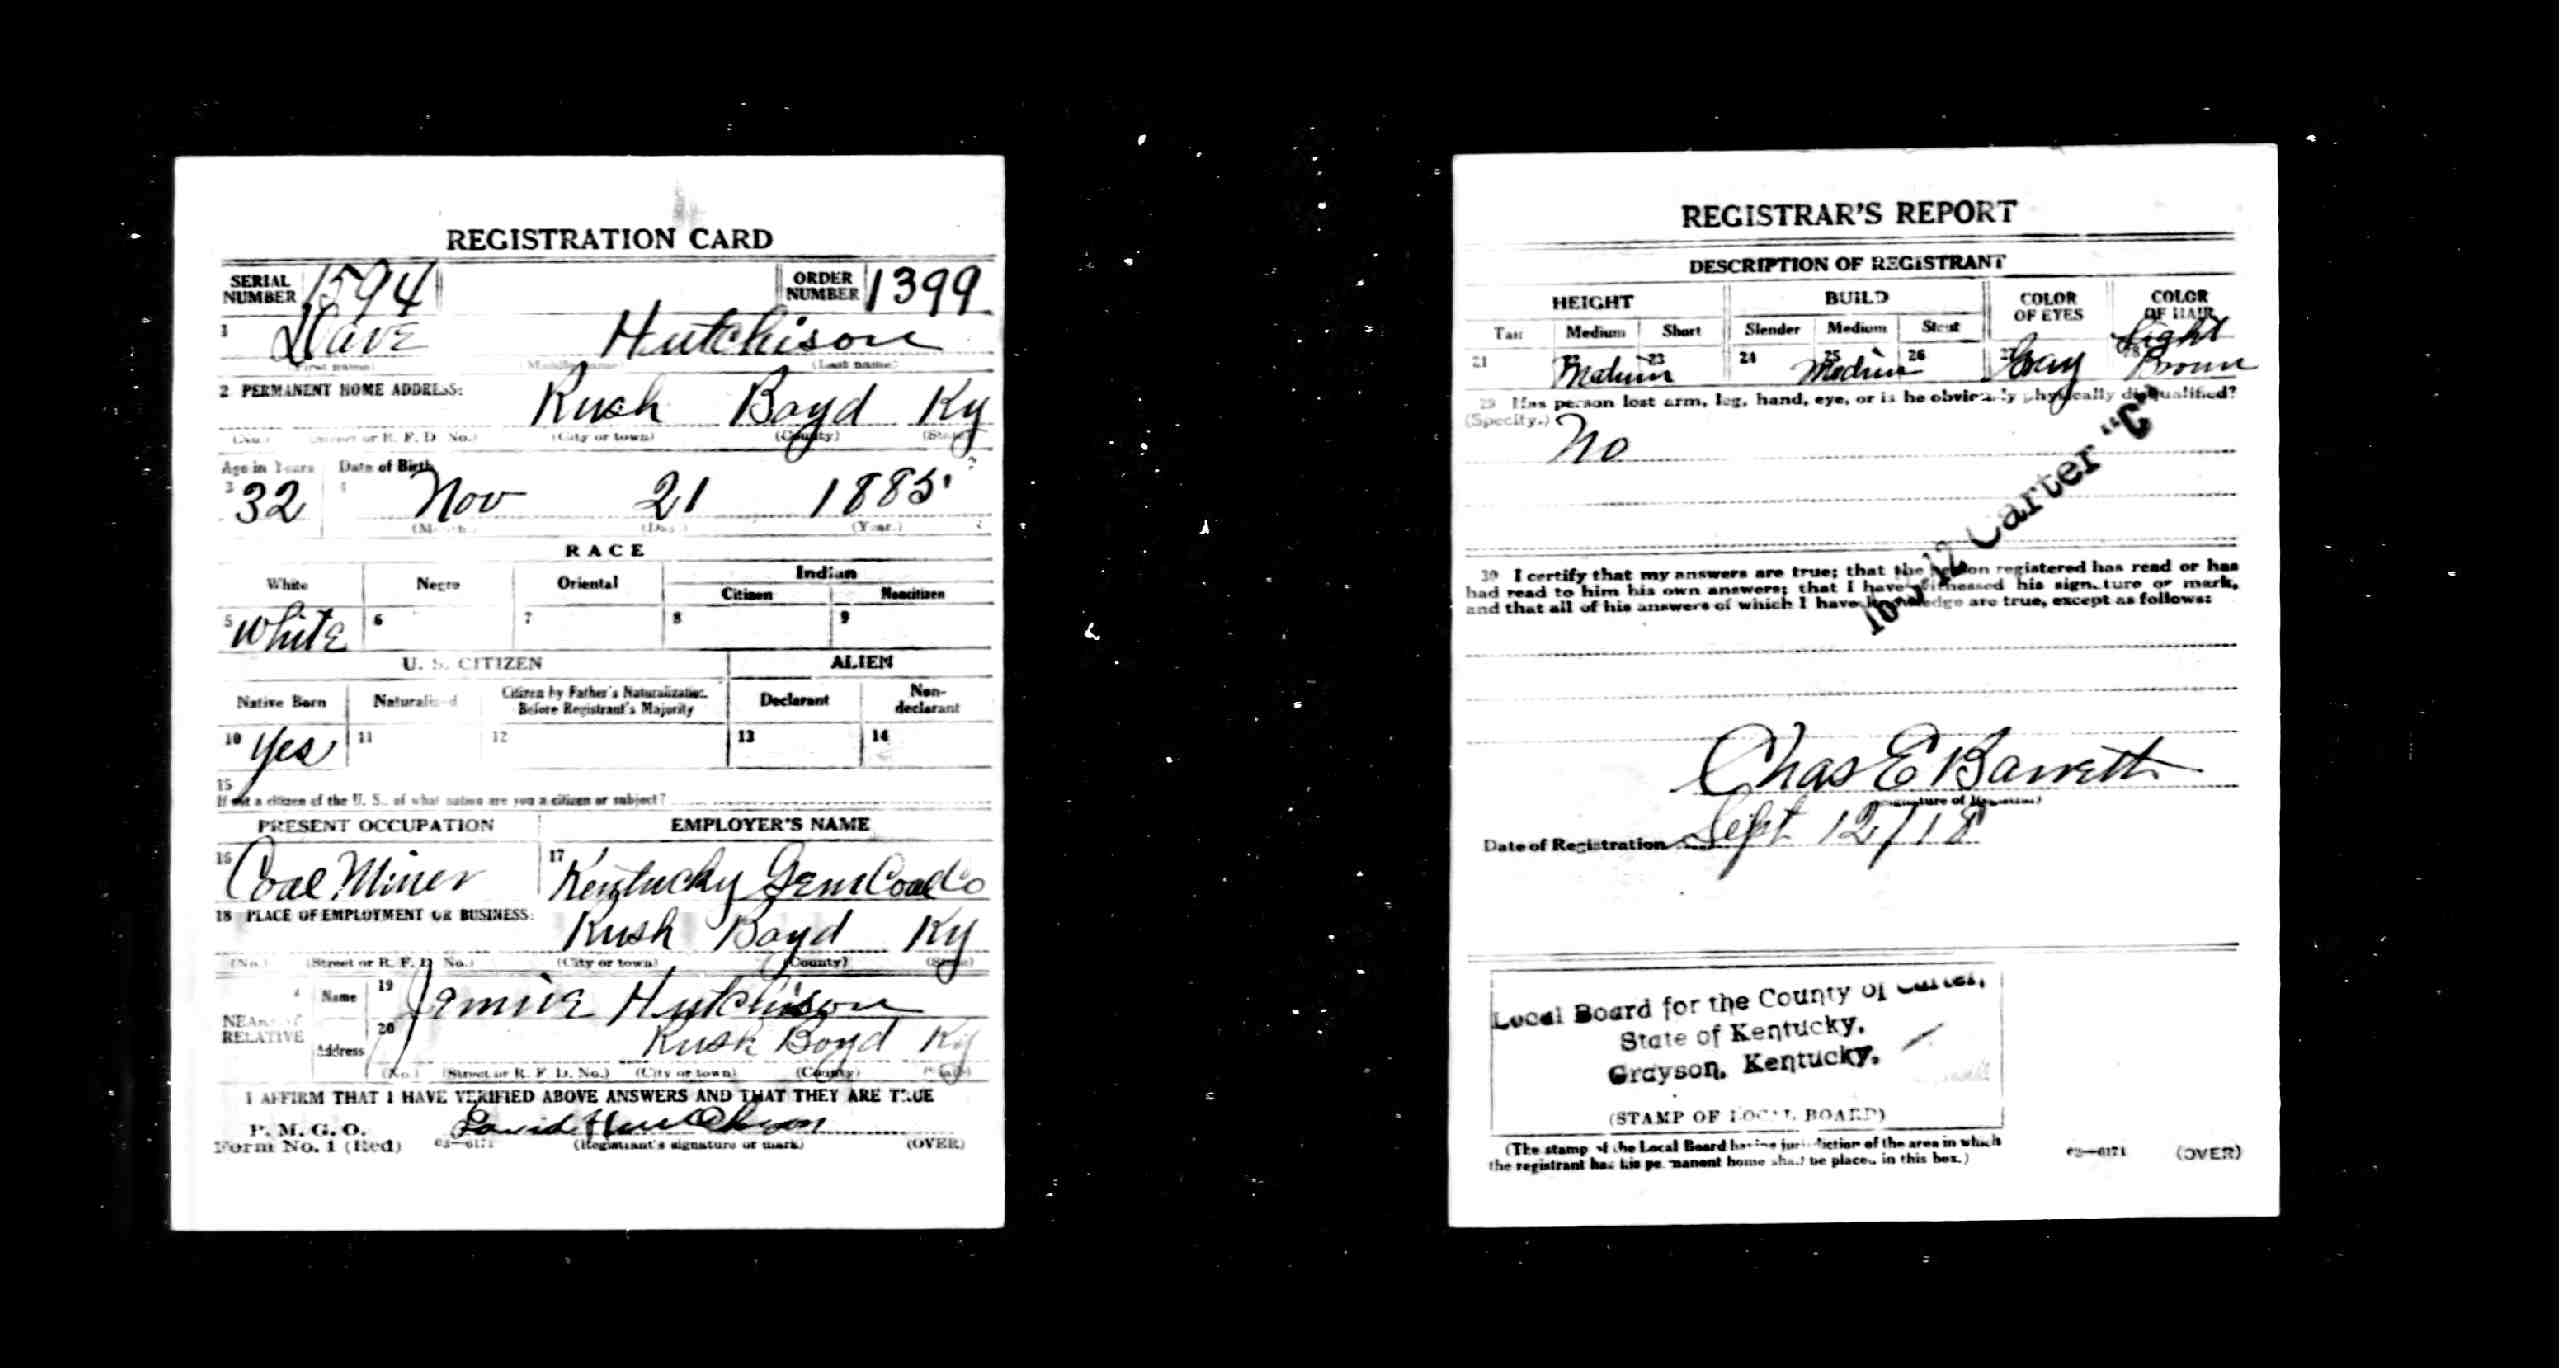 REGISTRATION CARD
SERIAL NUMBER 1594 ORDER NUMBER 1399
1 Dave Hutchison
(First name) (Middle name) (Last name)
2 PERMANENT HOME ADDRESS:
Rush Boyd Ky
(No.) (Street or R. F. D. No.) (City or town) (County) (State)
Age in Years Date of Birth
3 32 4 Nov 21 1885
(Month.) (Day.) (Year.)
RACE
White Negro Oriental Indian
Citizen Noncitizen
5 White 6 7 8 9
U. S. CITIZEN ALIEN
Native Born Naturalized Citizen by Father's Naturalization Before Registrant's Majority Declarant Non-declarant
10 Yes 11 12 13 14
15
If not a citizen of the U. S., of what nation are you a citizen or subject?
PRESENT OCCUPATION EMPLOYER'S NAME
16 Coal Miner 17 Kentucky Gem Coal Co
18 PLACE OF EMPLOYMENT OR BUSINESS:
Rush Boyd Ky
(No.) (Street or R. F. D. No.) (City or town) (County) (State)
NEAREST RELATIVE Name 19 Hutchison
Address 20 Rush Boyd Ky
(No.) (Street or R. F. D. No.) (City or town) (County) (State)
I AFFIRM THAT I HAVE VERIFIED ABOVE ANSWERS AND THAT THEY ARE TRUE
P. M. G. O.
Form No. 1 (Red) 03—6171 David Hutchison
(Registrant's signature or mark) (OVER)
REGISTRAR'S REPORT
DESCRIPTION OF REGISTRANT
HEIGHT BUILD COLOR OF EYES COLOR OF HAIR
Tall Medium Short Slender Medium Stout
21 22 Medium 23 24 25 Medium 26 27 Gray 28 Light Brown
29 Has person lost arm, leg, hand, eye, or is he obviously physically disqualified?
(Specify.) No
16-1-12 Carter "C"
30 I certify that my answers are true; that the person registered has read or has
had read to him his own answers; that I have witnessed his signature or mark,
and that all of his answers of which I have knowledge are true, except as follows:
Chas E Barrett
(Signature of Registrar)
Date of Registration Sept 12/18
Local Board for the County of Carter,
State of Kentucky,
Grayson, Kentucky.
(STAMP OF LOCAL BOARD)
(The stamp of the Local Board having jurisdiction of the area in which
the registrant has his permanent home shall be placed in this box.)
03—6171 (OVER)